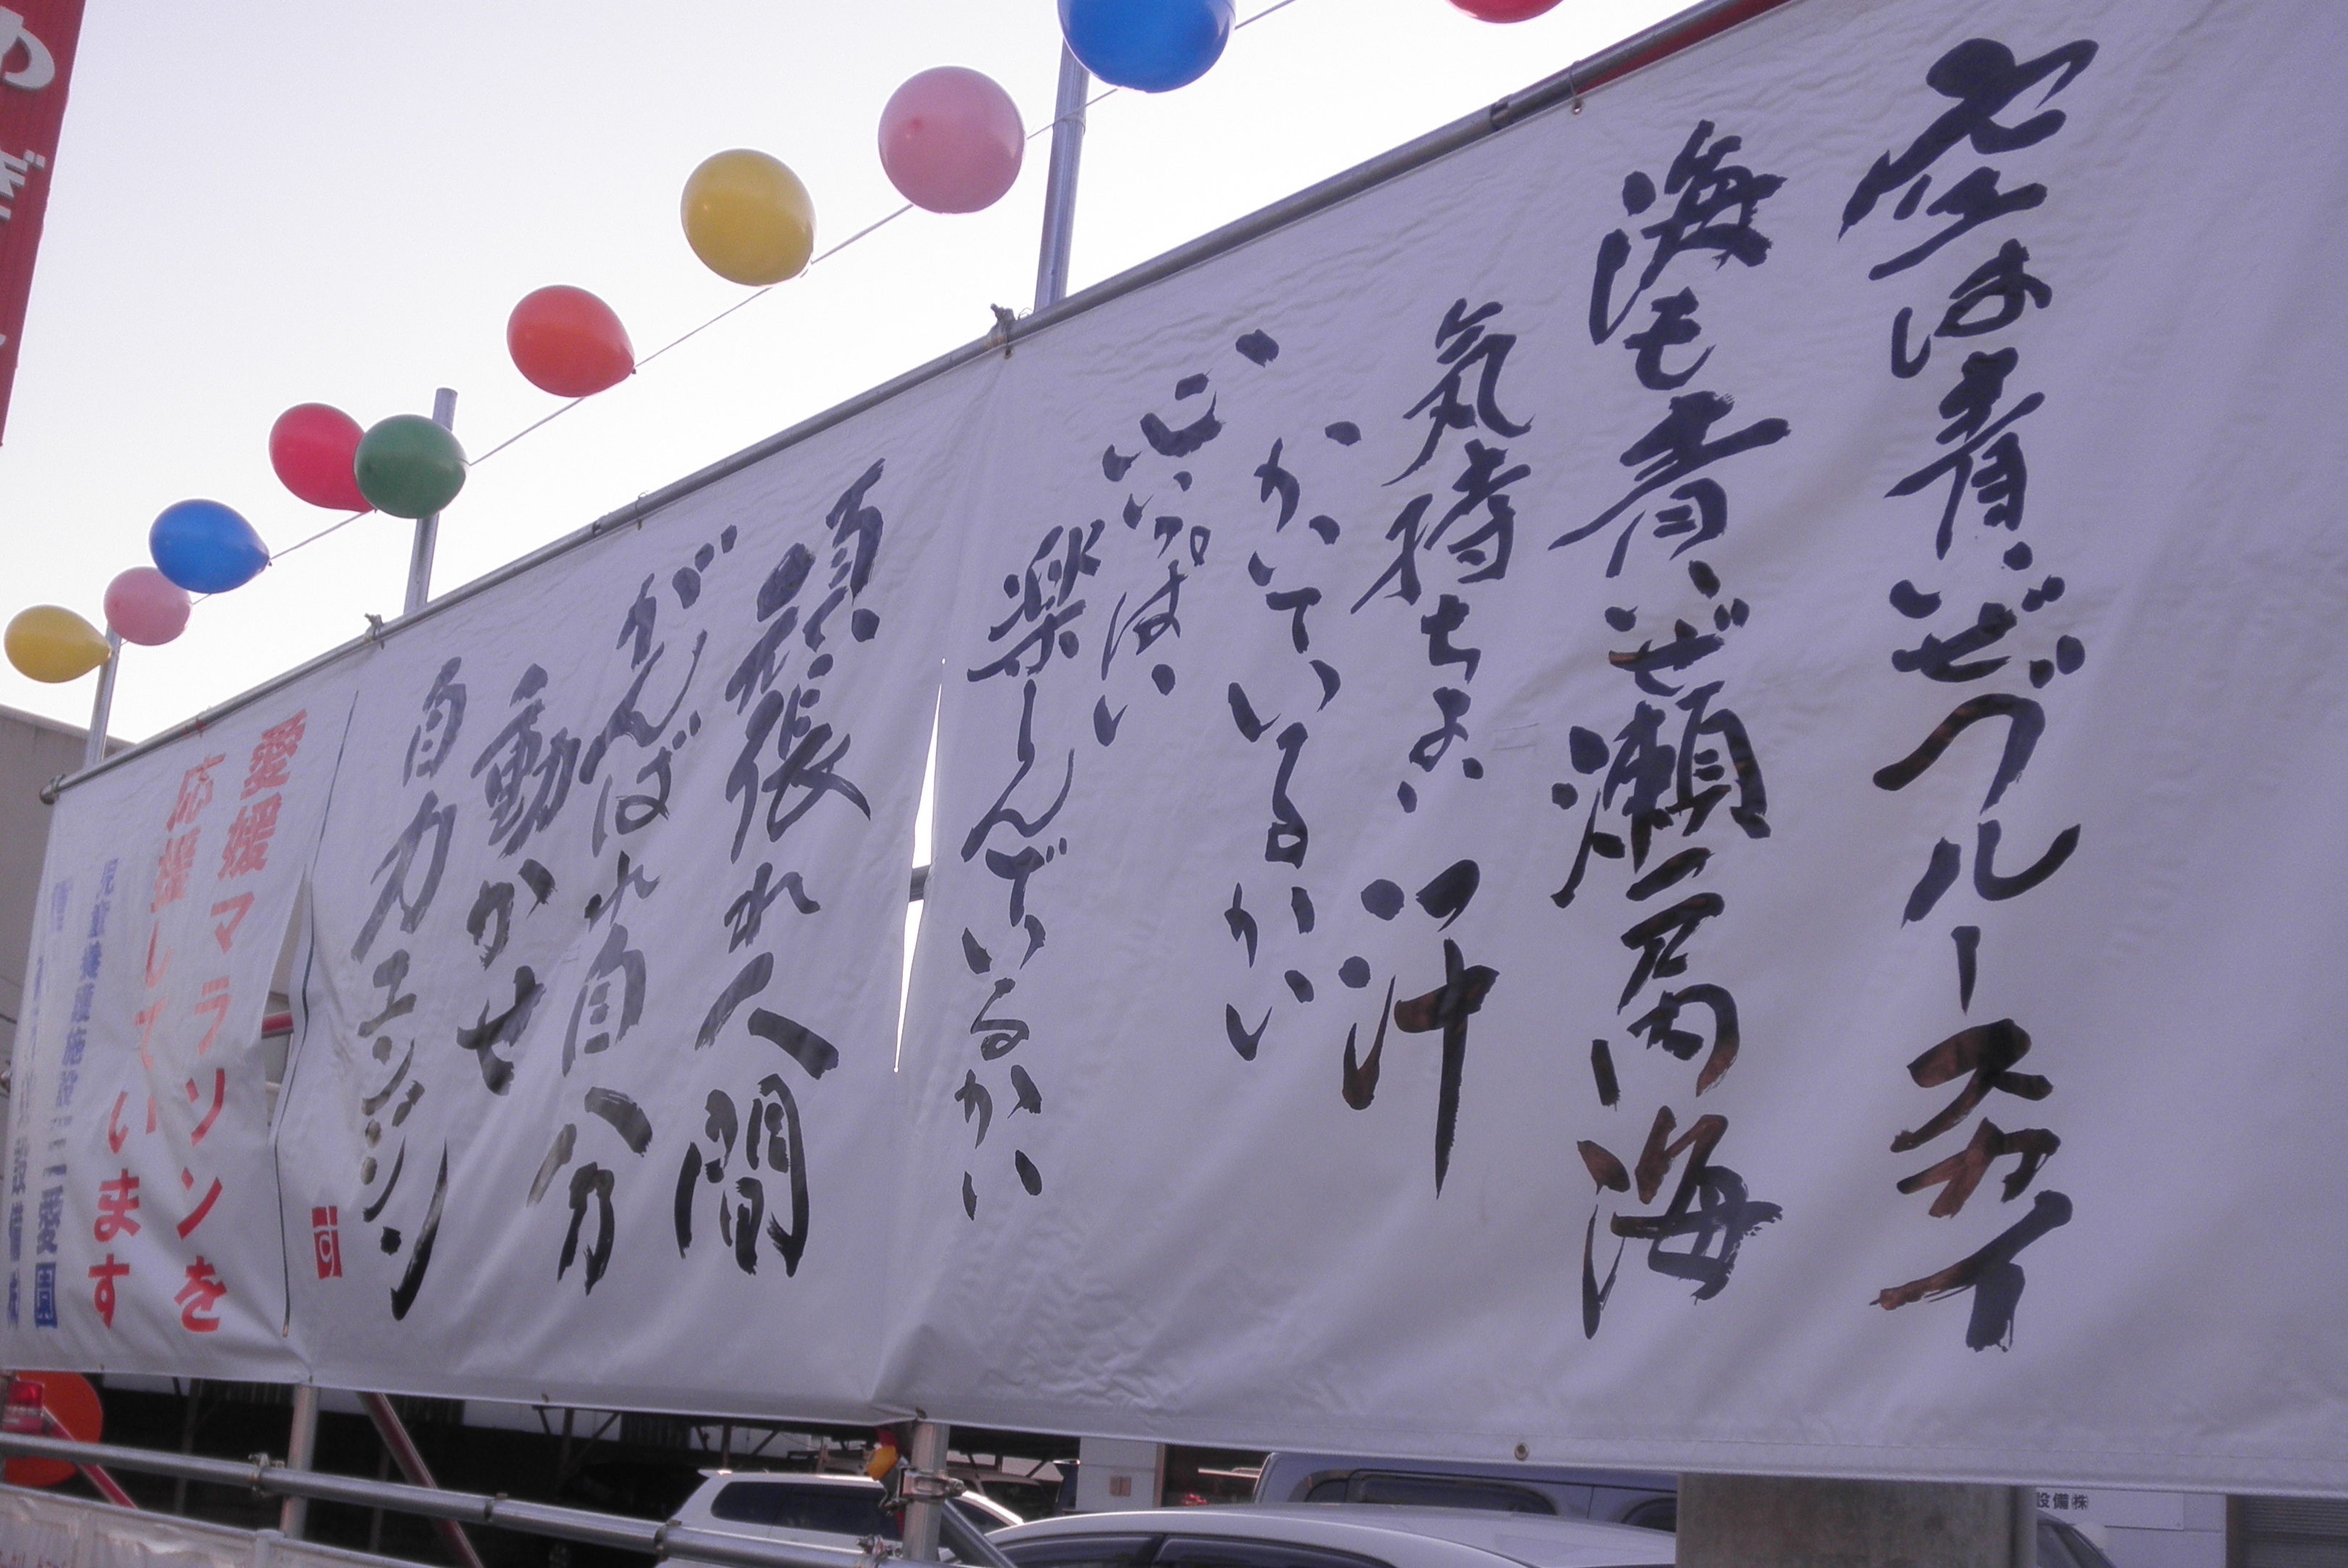 空は青いぜブルースカイ
海も青いぜ瀬戸内海
気持ちよい汗
かいているかい
心いっぱい
楽しんでいるかい
頑張れ人間
がんばれ自分
動かせ
自力エンジン
愛媛マラソンを
応援しています
児童養護施設三愛園
設備株